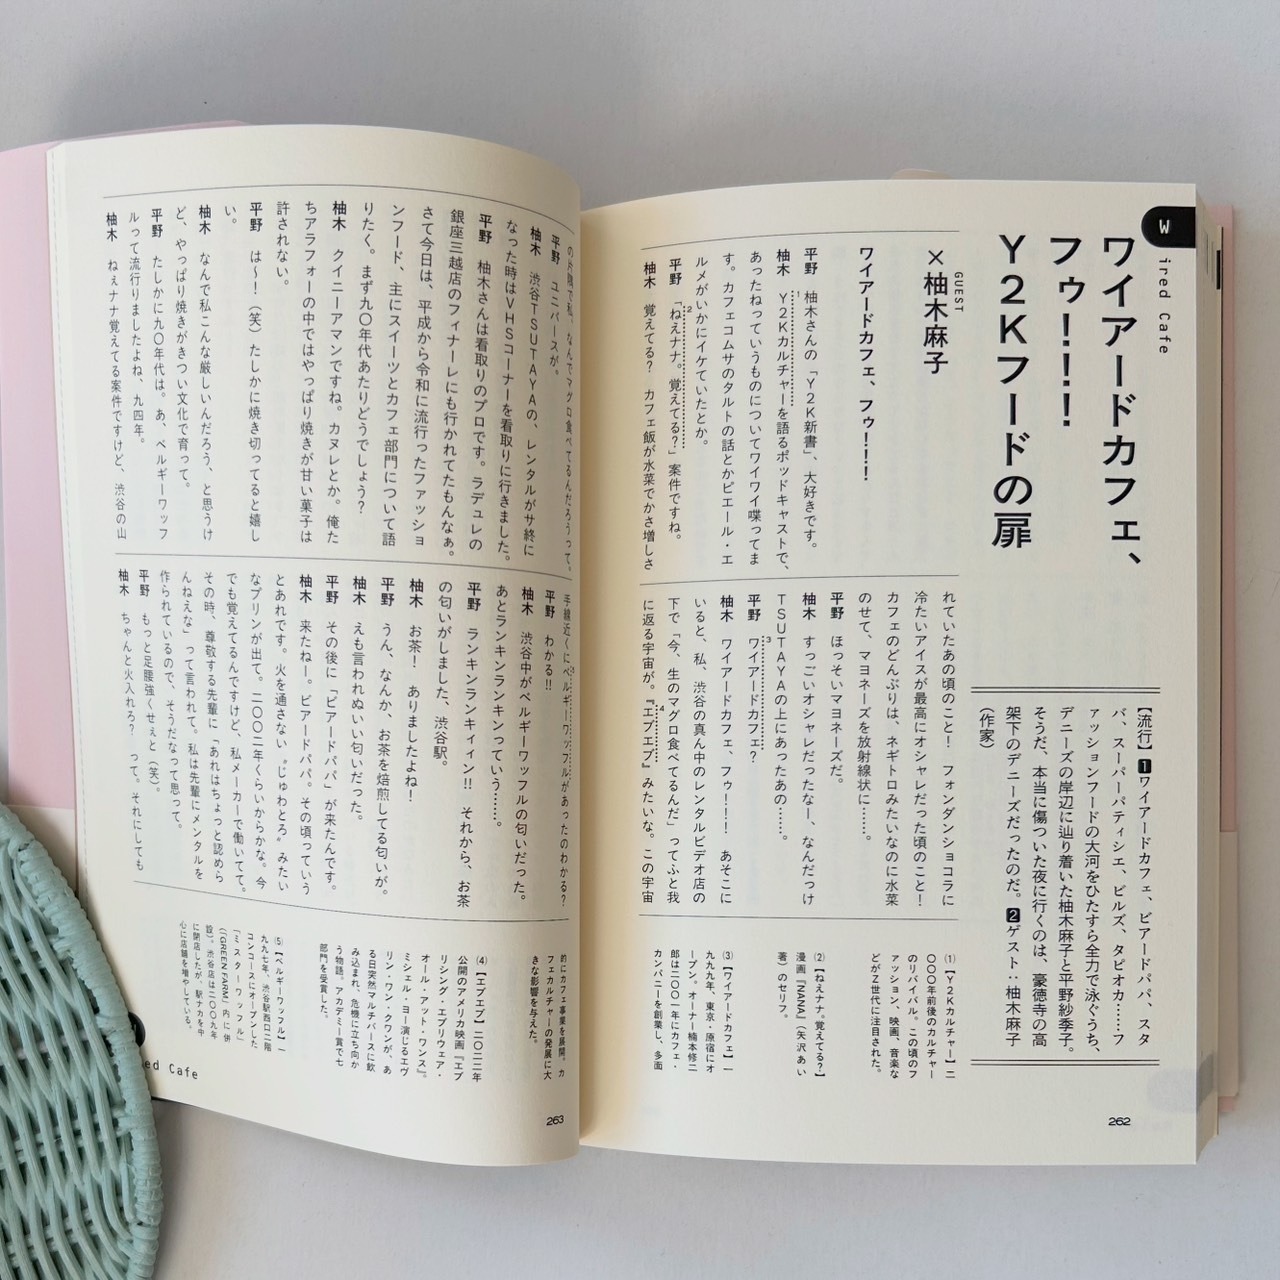 W
ired Cafe
ワイアードカフェ、
フゥ!!!!
Y2Kフードの扉
【流行】1ワイアードカフェ、ビアードパパ、スタ
バ、スーパーパティシエ、ビルズ、タピオカ……フ
ァッションフードの大河をひたすら全力で泳ぐうち、
デニーズの岸辺に辿り着いた柚木麻子と平野紗季子。
そうだ、本当に傷ついた夜に行くのは、豪徳寺の高
架下のデニーズだったのだ。2ゲスト:柚木麻子
(作家)
GUEST
×柚木麻子
ワイアードカフェ、フゥ!!!
平野 柚木さんの「Y2K新書」、大好きです。
柚木 Y2Kカルチャーを語るポッドキャストで、
あったねっていうものについてワイワイ喋ってま
す。カフェコムサのタルトの話とかピエール・エ
ルメがいかにイケていたとか。
平野 「ねえナナ。覚えてる?」案件ですね。
柚木 覚えてる? カフェ飯が水菜でかさ増しさ
れていたあの頃のこと! フォンダンショコラに
冷たいアイスが最高にオシャレだった頃のこと!
カフェのどんぶりは、ネギトロみたいなのに水菜
のせて、マヨネーズを放射線状に……。
平野 ほっそいマヨネーズだ。
柚木 すっごいオシャレだったなー、なんだっけ
TSUTAYAの上にあったあの……。
平野 ワイアードカフェ?
柚木 ワイアードカフェ、フゥ!!! あそこに
いると、私、渋谷の真ん中のレンタルビデオ店の
下で「今、生のマグロ食べてるんだ」ってふと我
に返る宇宙が。『エブエブ』みたいな。この宇宙
(1)【Y2Kカルチャー】二
〇〇〇年前後のカルチャー
のリバイバル。この頃のフ
ァッション、映画、音楽な
どがZ世代に注目された。
(2)【ねえナナ。覚えてる?】
漫画『NANA』(矢沢あい
著)のセリフ。
(3)【ワイアードカフェ】一
九九九年、東京・原宿にオ
ープン。オーナー楠本修二
郎は二〇〇一年にカフェ・
カンパニーを創業し、多面
262
の片隅で私、なんでマグロ食べてるんだろうって。
平野 ユニバースが。
柚木 渋谷TSUTAYAの、レンタルがサ終に
なった時はVHSコーナーを看取りに行きました。
平野 柚木さんは看取りのプロです。ラデュレの
銀座三越店のフィナーレにも行かれてたもんなぁ。
さて今日は、平成から令和に流行ったファッショ
ンフード、主にスイーツとカフェ部門について語
りたく。まず九〇年代あたりどうでしょう?
柚木 クイニーアマンですね。カヌレとか。俺た
ちアラフォーの中ではやっぱり焼きが甘い菓子は
許されない。
平野 は〜!(笑)たしかに焼き切ってると嬉し
い。
柚木 なんで私こんな厳しいんだろう、と思うけ
ど、やっぱり焼きがきつい文化で育って。
平野 たしかに九〇年代は。あ、ベルギーワッフ
ルって流行りましたよね、九四年。
柚木 ねぇナナ覚えてる案件ですけど、渋谷の山
手線近くにベルギーワッフルがあったのわかる?
平野 わかる!!
柚木 渋谷中がベルギーワッフルの匂いだった。
あとランキンランキンっていう……。
平野 ランキンランキィィン!! それから、お茶
の匂いがしました、渋谷駅。
柚木 お茶! ありましたよね!
平野 うん、なんか、お茶を焙煎してる匂いが。
柚木 えも言われぬいい匂いだった。
平野 その後に「ビアードパパ」が来たんです。
柚木 来たねー。ビアードパパ。その頃っていう
とあれです。火を通さない〝じゅわとろ〟みたい
なプリンが出て。二〇〇二年くらいからかな。今
でも覚えてるんですけど、私メーカーで働いてて。
その時、尊敬する先輩に「あれはちょっと認めら
んねえな」って言われて。私は先輩にメンタルを
作られているので、そうだなって思って。
平野 もっと足腰強くせぇと(笑)。
柚木 ちゃんと火入れろ? って。それにしても
的にカフェ事業を展開。カ
フェカルチャーの発展に大
きな影響を与えた。
(4)【エブエブ】二〇二二年
公開のアメリカ映画『エブ
リシング・エブリウェア・
オール・アット・ワンス』。
ミシェル・ヨー演じるエヴ
リン・ワン・クワンが、あ
る日突然マルチバースに飲
み込まれ、危機に立ち向か
う物語。アカデミー賞で七
部門を受賞した。
(5)【ベルギーワッフル】一
九九七年、渋谷駅西口二階
コンコースにオープンした
「ミスターワッフル」
(「GREEN FARM」内に併
設)。渋谷店は二〇〇九年
に閉店したが、駅ナカを中
心に店舗を増やしている。
ed Cafe
263